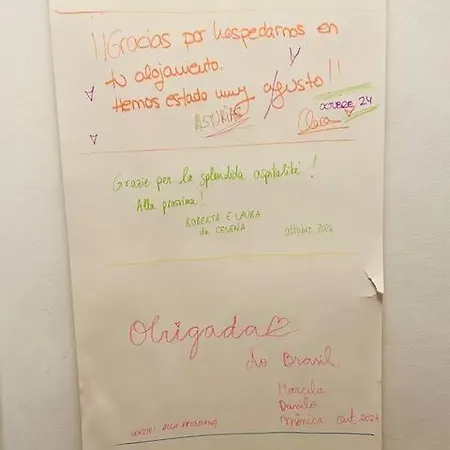 ¡¡Gracias por hospedarnos en
tu alojamiento.
Hemos estado muy agusto!!
ASTURIAS
OCTUBRE, 24
Clara
Grazie per la splendida ospitalità!
Alla prossima!
ROBERTA E LAURA
da CESENA
ottobre 2024
Obrigada
do Brasil
Marcela
Danilo
Mônica Out, 2024